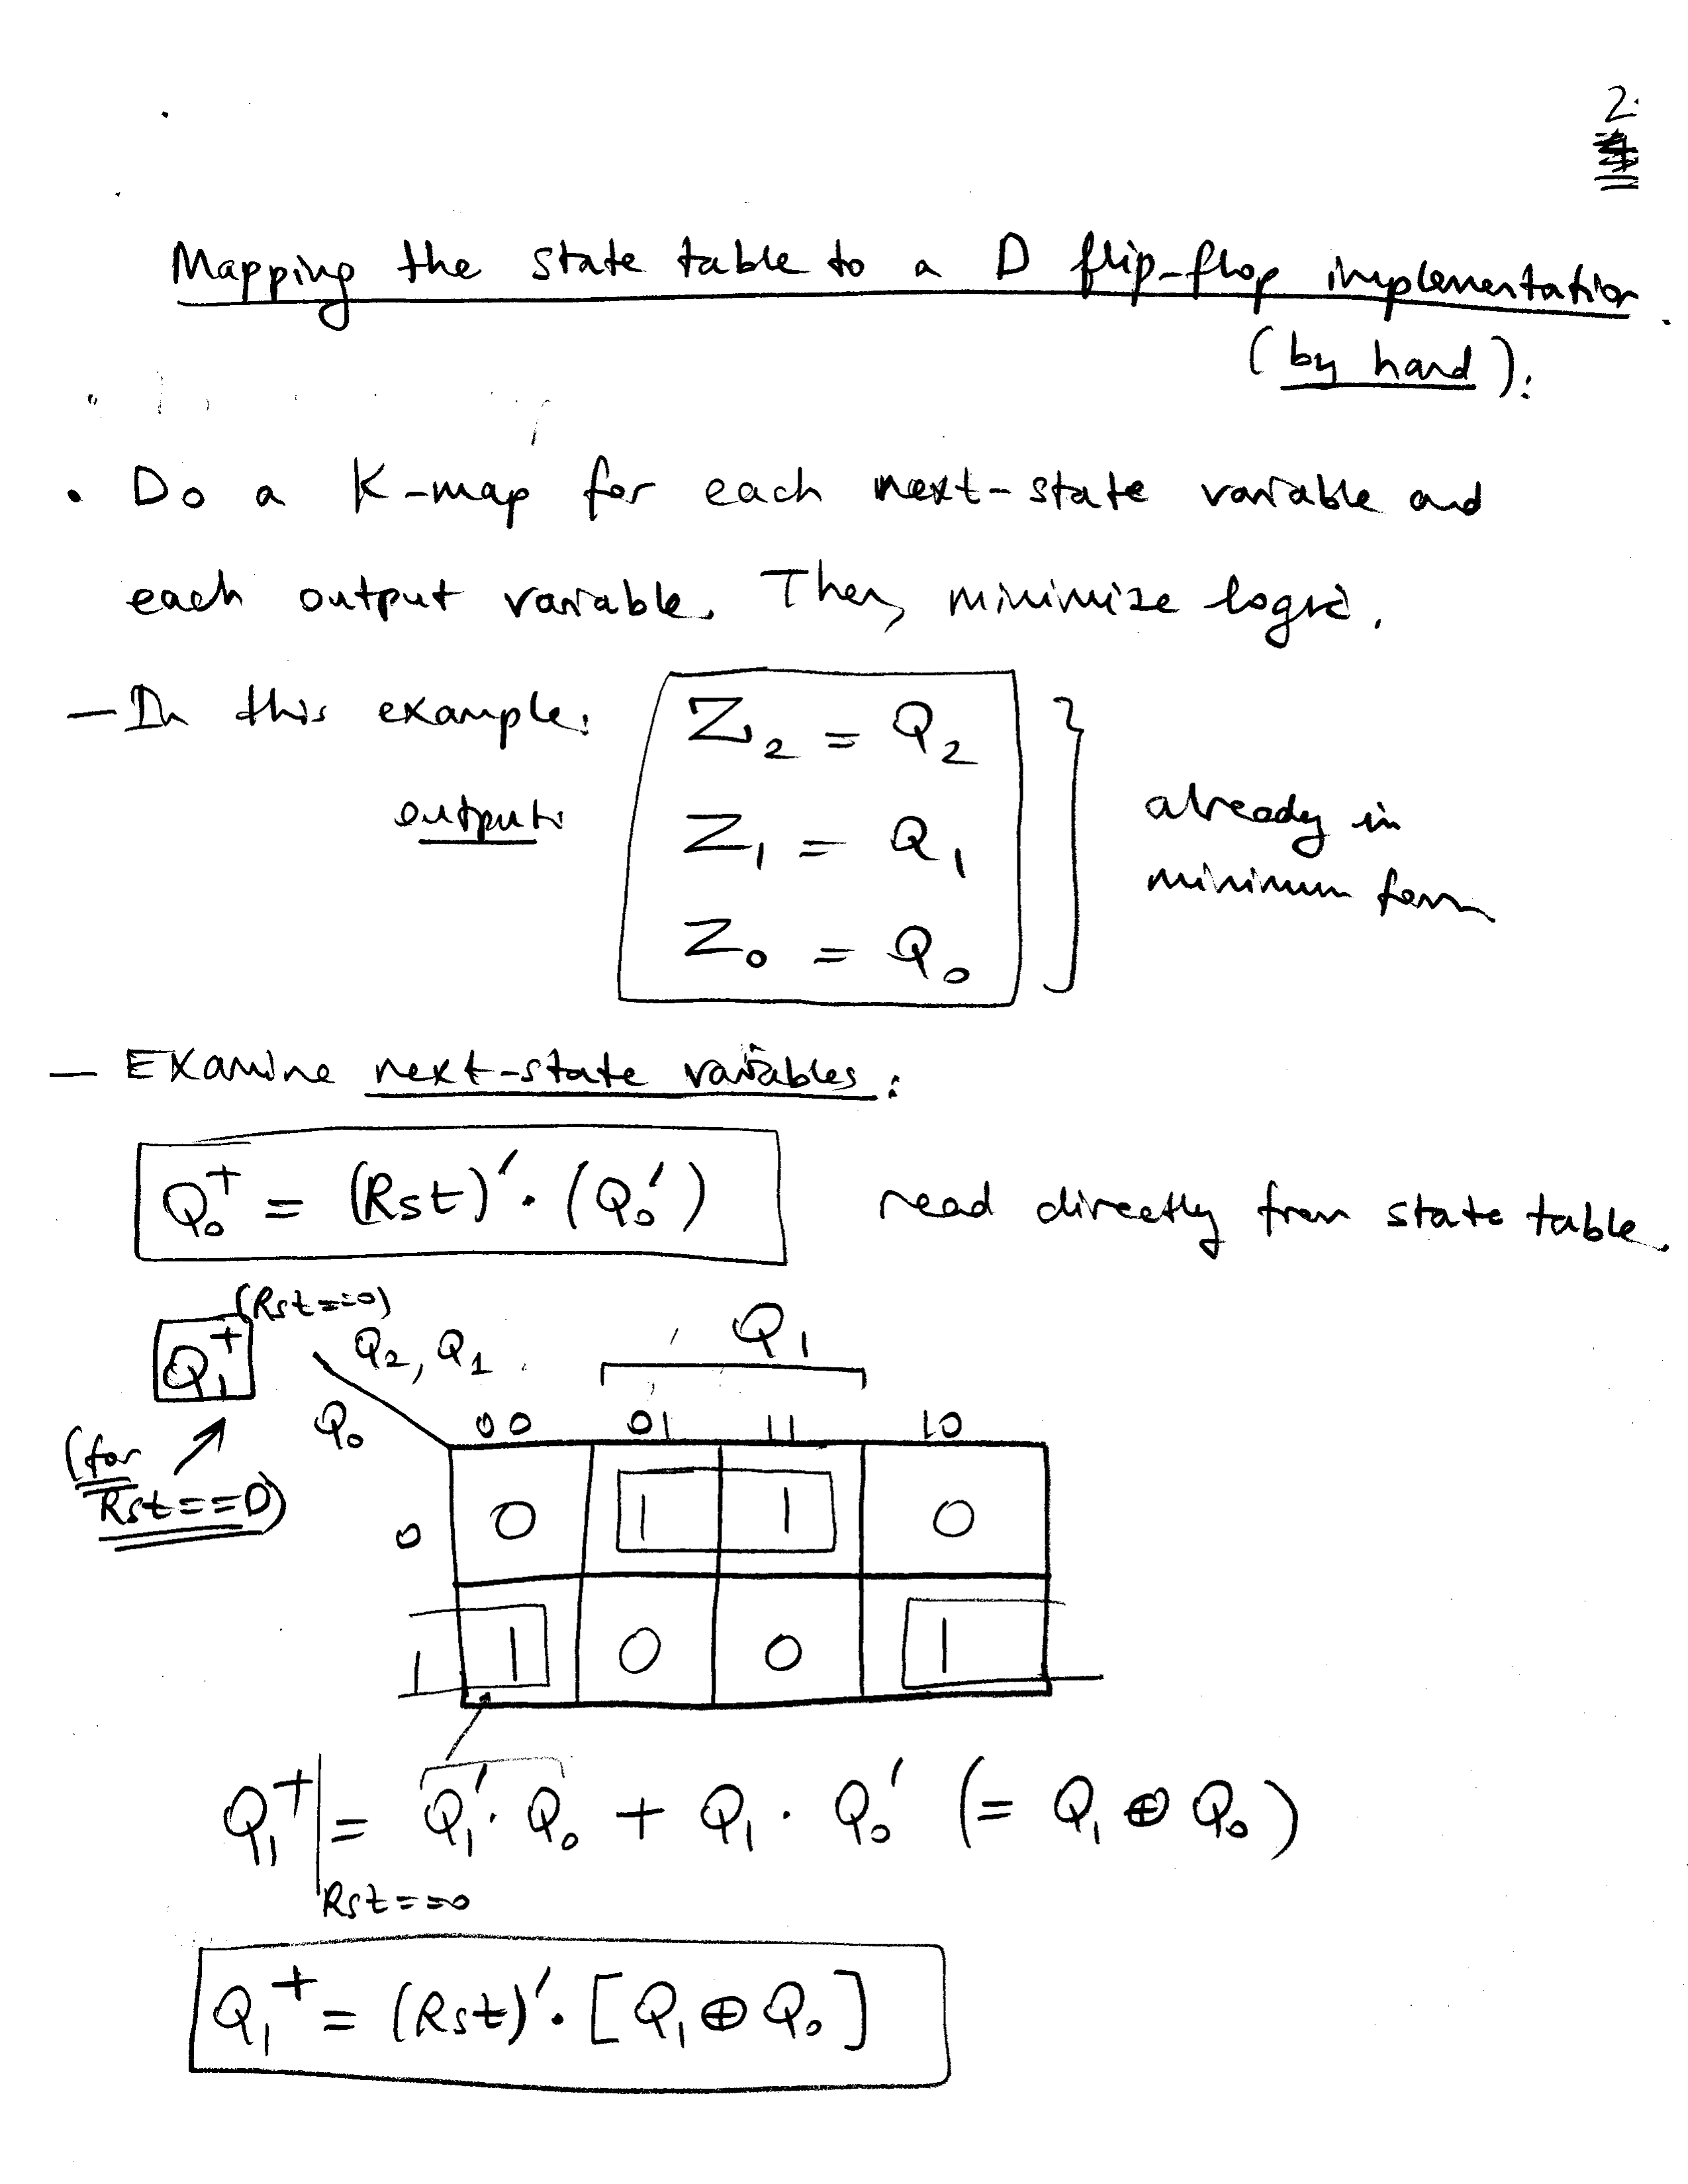 2.
Mapping the state table to a D flip-flop implementation.
(by hard):
• Do a K-map for each next-state variable and
each output variable. Then, minimize logic.
— In this example:
Z₂ = Q₂
outputs
Z₁ = Q₁
already in
minimum form
Z₀ = Q₀
— Examine next-state variables:
Q₀⁺ = (Rst)'·(Q₀') read directly from state table.
(Rst==0)
Q₁⁺
Q₂, Q₁
Q₁
Q₀
00 01 11 10
(for
Rst==0)
0 0 1 1 0
1 1 0 0 1
Q₁⁺| = Q₁'·Q₀ + Q₁·Q₀' (= Q₁ ⊕ Q₀)
Rst==0
Q₁⁺ = (Rst)'·[Q₁ ⊕ Q₀]